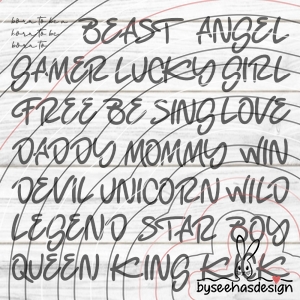 born to be a
born to be
born to
BEAST ANGEL
GAMER LUCKY GIRL
FREE BE SING LOVE
DADDY MOMMY WIN
DEVIL UNICORN WILD
LEGEND STAR BOY
QUEEN KING
byseehasdesign